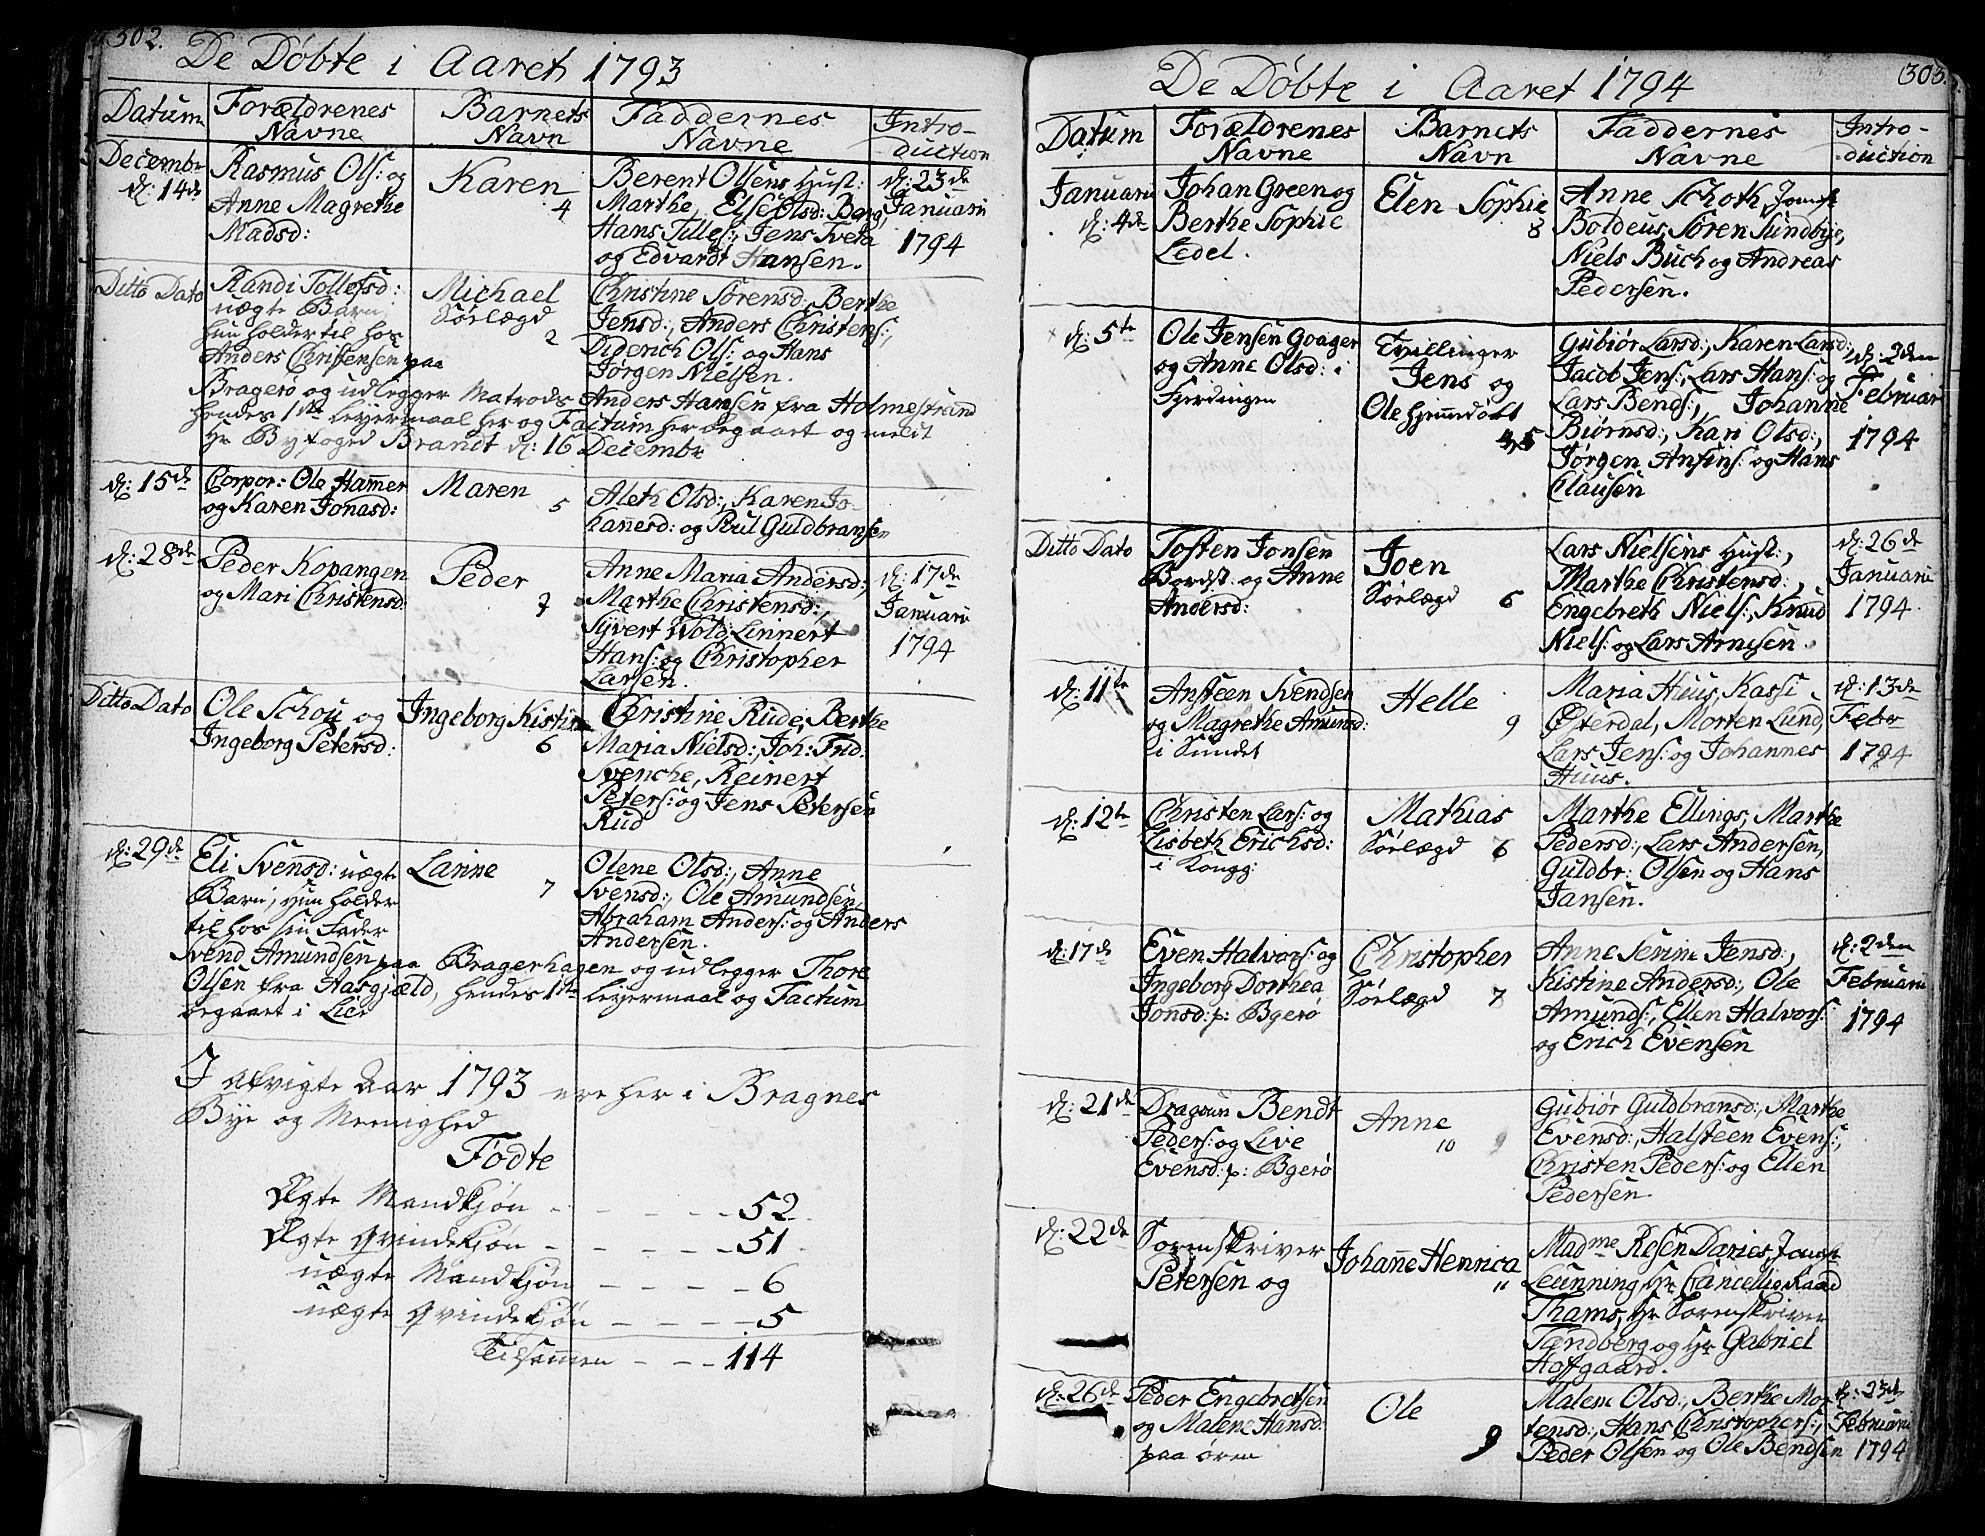 302.
De Døbte i Aaret 1793
Datum
Forældrenes
Navne
Barnets
Navn
Faddernes
Navne
Intro-
duction
Decembr
d: 14de
Rasmus Ols: og
Anne Magrethe
Madsd:
Karen
4
Berent Olsens Hust:
Marthe, Else Olsd: Berg,
Hans Tilles:, Jens Tveta
og Edvardt Hansen.
d: 23de
Januarii
1794
Ditto Dato
Randi Tollefsd:
uægte Barn,
hun holder til hos
Anders Christensen paa
Bragerø og udlegger Matrods Anders Hansen fra Holmestrand
hendes 1ste leyermaal her og Factum her begaaet og meldt
Hr Byefoged Brandt d: 16 Decembr
Michael
Sørlægd
2
Christine Sørensd: Berthe
Jensd:, Anders Christens:,
Diderich Ols: og Hans
Jørgen Nielsen.
d: 15de
Corpor: Ole Ham̅er
og Karen Jonasd:
Maren
5
Aleth Olsd:, Karen Jo-
han̅esd: og Poul Guldbransen
d: 28de
Peder Kopangen
og Mari Christensd:
Peder
3
Anne Maria Andersd:,
Marthe Christensd:,
Syvert Wold, Linnert
Hans: og Christopher
Larsen.
d: 17de
Januarii
1794
Ditto Dato
Ole Schou og
Ingeborg Petersd:
Ingeborg Kistine
6
Christine Rude, Berthe
Maria Nielsd:, Joh: Frid:
Svenche, Reinert
Peters: og Jens Petersen
Rud
d: 29de
Eli Svensd: uægte
Barn, hun holder
til hos sin Fader
Svend Amundsen paa Bragerhagen og udlegger Thore
Olsen fra Aasgjæld, hendes 1te leyermaal og Factum
begaaet i Lier
Larine
7
Olene Olsd:, Anne
Svensd:, Ole Amundsen,
Abraham Anders: og Anders
Andersen.
I afvigte Aar 1793 ere her i Bragnes
Bye og Meenighed
Fødte
Ægte Mandkjøn - - - - - 52
Ægte Qvindekjøn - - - - - 51
uægte Mandkjøn - - - - 6
uægte Qvindekjøn - - - - 5
Tilsammen - - - 114
303.
De Døbte i Aaret 1794
Datum
Forældrenes
Navne
Barnets
Navn
Faddernes
Navne
Intro-
duction
Januarii
d: 4de
Johan Green og
Berthe Sophie
Ledel.
Elen Sophie
8
Anne Schoth, Jomfr
Boldeus, Søren Sundbye,
Niels Buch og Andreas
Pedersen.
d: 5te
Ole Jensen Goager
og Anne Olsd: i
Fjerdingen
Tvillinger
Jens og
Ole hjemmdøbt
4,5
Gubiør Larsd:, Karen Larsd:,
Jacob Jens:, Lars Hans: og
Lars Bends:, Johanne
Biørnsd:, Kari Olsd:,
Jørgen Ansens: og Hans
Clausen
d: 2den
Februarii
1794
Ditto Dato
Tosten Jonsen
Bordst: og Anne
Andersd:
Joen
Sørlægd 6
Lars Nielsens Hust:,
Marthe Christensd:,
Engebreth Niels:, Knud
Niels: og Lars Arnesen.
d: 26de
Januarii
1794.
d: 11te
Ansteen Svendsen
og Magrethe Amundsd:
i Sundet
Helle
9
Maria Huus, Kassi
Østerdal, Morten Lund,
Lars Jens: og Johannes
Huus.
d: 13de
Febr
1794
d: 12te
Christen Lars: og
Lisbeth Erichsd:
i Kongg:
Mathias
Sørlægd 6
Marthe Ellings, Marthe
Pedersd:, Lars Andersen,
Guldbr: Olsen og Hans
Jansen.
d: 17de
Even Halvors: og
Ingeborg Dorthea
Jonsd: p: Bgerø
Christopher
Sørlægd 7
Anne Serine Jensd:,
Kistine Andersd:, Ole
Amunds:, Ellen Halvors:
og Erich Evensen
d: 2den
Februarii
1794
d: 21de
Dragoun Bendt
Peders: og Live
Evensd: p: Bgerø
Anne
10
Gubiør Guldbransd:, Marthe
Evensd:, Halsteen Evens:,
Christen Peders: og Ellen
Pedersen.
d: 22de
Sorenskriver
Petersen og
Johan̅e Henrica
11
Madme Resen Daries, Jomfr
Leunning, Hr Cancellie Raad
Thams, Hr Sorenskriver
Tandberg og Hr Gabriel
Hofgaard.
d: 26de
Peder Engebretsen
og Malene Hansd:
paa øren
Ole
9
Malene Olsd:, Berthe Mor-
tensd:, Hans Christophers:,
Peder Olsen og Ole Bendsen
d: 23de
Februarii
1794